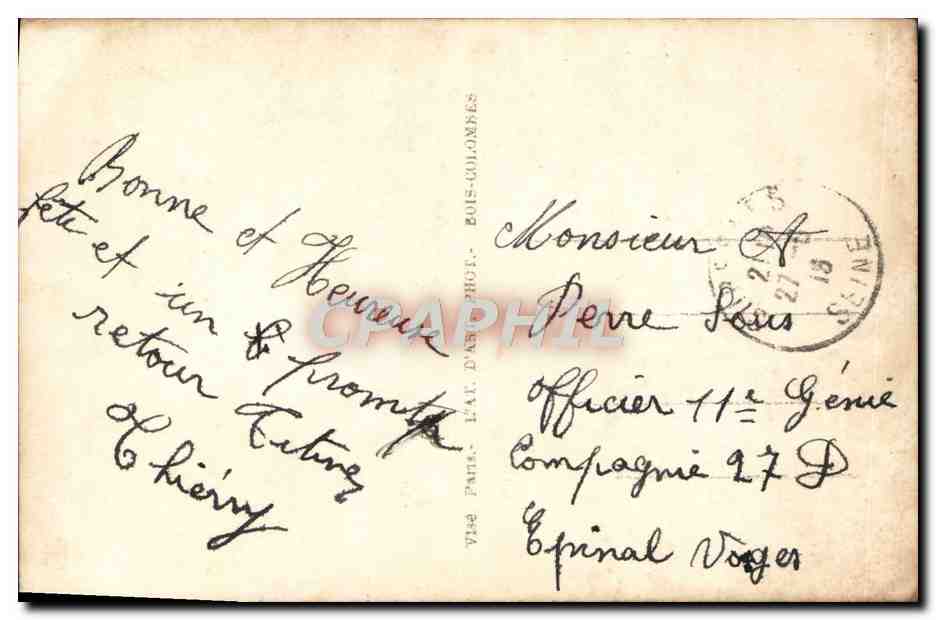 Bonne et Heureuse
fête et un prompt
retour Titine
Thiérry
Visé Paris.- L'AT. D'ART PHOT.- BOIS-COLOMBES
Monsieur A
Perre Sous
officier 11e Génie
Compagnie 27 D
Epinal Vosges
27
18
SEINE
CPAPHIL